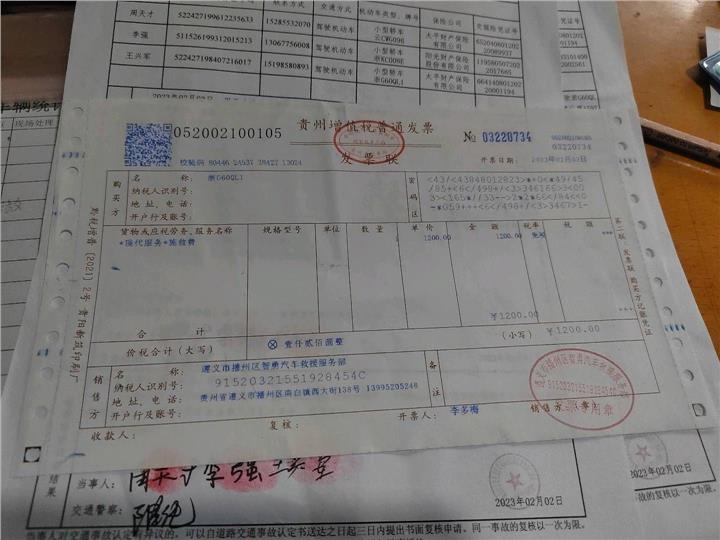 联系方式 交通方式 机动车类型、牌号 保险公司 交强险凭证号
周天才 522427199612235633 15285532070 驾驶机动车 小型轿车 太平财产保险有限公司
李强 511526199312015213 13067756008 驾驶机动车 小型轿车 浙KC009E 阳光财产保险股份有限公司
王兴军 522427198407216017 15198580893 驾驶机动车 小型轿车 浙G60QL1 太平财产保险有限公司
现场处理
052002100105 贵州增值税普通发票 № 03220734
052002100105
03220734
校验码 80446 24537 28427 13024 发票联 开票日期: 2023年02月02日
购买方 名 称: 浙G60QL1
纳税人识别号:
地 址、电 话:
开户行及账号:
密码区
货物或应税劳务、服务名称 规格型号 单位 数量 单价 金额 税率 税额
*现代服务*施救费 1200.00 1200.00 免税 ***
合 计 ¥1200.00 ***
价税合计(大写) ⊗ 壹仟贰佰圆整 (小写) ¥1200.00
销售方 名 称: 遵义市播州区智勇汽车救援服务部
纳税人识别号: 91520321551928454C
地 址、电 话: 贵州省遵义市播州区南白镇西大街138号 13995205248
开户行及账号:
备注
收款人: 复核: 开票人: 李多梅 销售方:(章)
黔税增普〔2021〕2号 贵阳新筑印刷厂
第二联:发票联 购买方记账凭证
遵义市播州区智勇汽车救援服务部
91520321551928454C
发票专用章
结果
当事人: 周天才 李强 王兴军
交通警察:
2023年02月02日
2023年02月02日
当事人对交通事故认定有异议的,可以自道路交通事故认定书送达之日起三日内提出书面复核申请。同一事故的复核以一次为限。
事故的复核以一次为限。